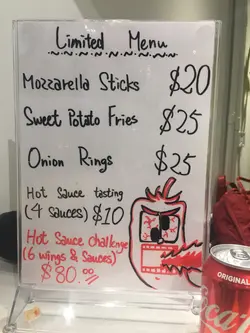 Limited Menu
Mozzarella Sticks $20
Sweet Potato Fries $25
Onion Rings $25
Hot Sauce tasting
(4 sauces) $10
Hot Sauce challenge
(6 wings & Sauces)
$80.00
ORIGINAL